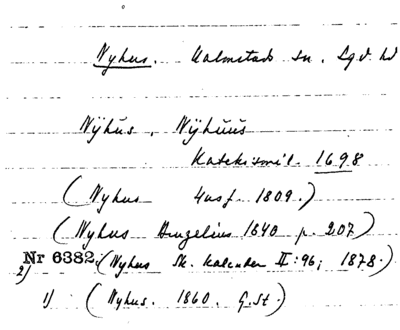 Nyhus. Halmstads sn. Lgd. hd
Nÿhús, Nÿhúús
Katekismil. 1698
(Nyhus Husf. 1809.)
(Nyhus Angelius 1840 p. 207)
Nr 6382. (Nyhus Sk. Kalender II:96, 1878.)
2)
1) (Nyhus. 1860. G.St.)